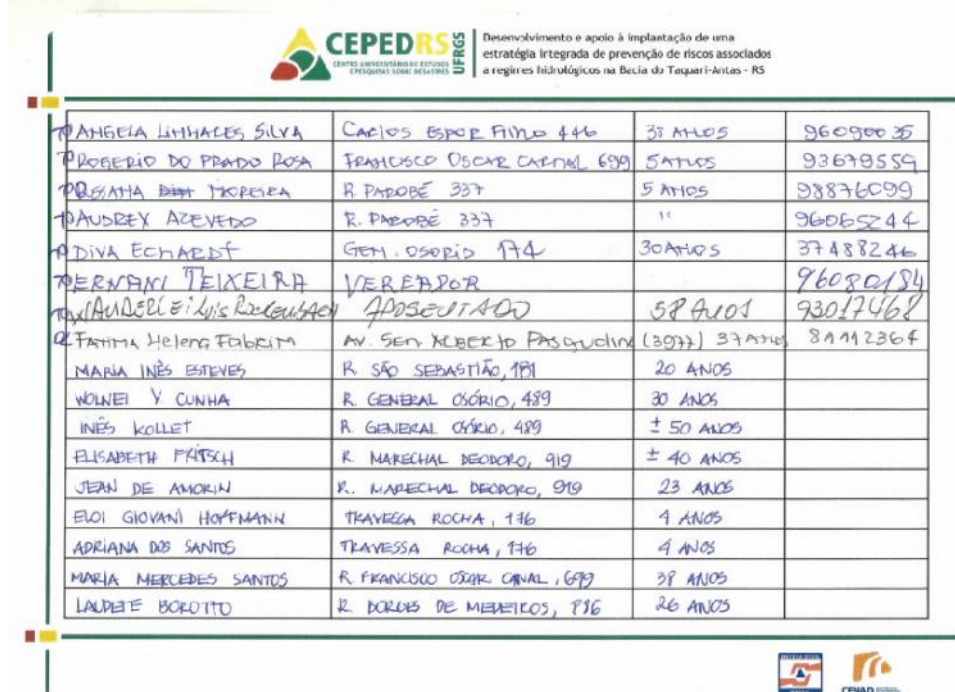 CEPEDRS UFRGS
CENTRO UNIVERSITÁRIO DE ESTUDOS
E PESQUISAS SOBRE DESASTRES
Desenvolvimento e apoio à implantação de uma
estratégia integrada de prevenção de riscos associados
a regimes hidrológicos na Bacia do Taquari-Antas - RS
ANGELA SILVA CARLOS 446 38 ANOS 96090035
ROGERIO DO PRADO ROSA FRANCISCO OSCAR 699 5 ANOS 93679559
MOREIRA R. PAROBÉ 337 5 ANOS 98876099
AUDREY AZEVEDO R. PAROBÉ 337 " 96065244
DIVA GEN. OSORIO 174 30 ANOS 37488246
ERNANI TEIXEIRA VEREADOR 96080184
APOSENTADO 58 ANOS 93017468
FATIMA Helena Fabrim AV. SEN ALBERTO PASqualini (3977) 37 ANOS 81112364
MARIA INÊS ESTEVES R SÃO SEBASTIÃO, 181 20 ANOS
V CUNHA R. GENERAL OSÓRIO, 489 30 ANOS
INÊS KOLLET R GENERAL OSÓRIO, 489 ± 50 ANOS
ELISABETH FRITSCH R MARECHAL DEODORO, 919 ± 40 ANOS
JEAN DE AMORIN R. MARECHAL DEODORO, 919 23 ANOS
ELOI GIOVANI HOFFMANN TRAVESSA ROCHA, 176 4 ANOS
ADRIANA DOS SANTOS TRAVESSA ROCHA, 176 4 ANOS
MARIA MERCEDES SANTOS R. FRANCISCO OSCAR 699 38 ANOS
R. BORGES DE MEDEIROS, 26 ANOS